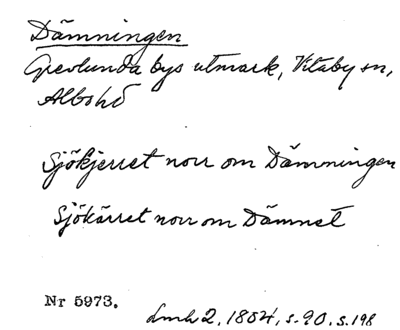 Dämningen
Grevlunda bys utmark, Vitaby sn,
Albo hd
Sjökjerret norr om Dämningen
Sjökärret norr om Dämnet
Nr 5973.
Lmh 2, 1804, s. 90, s. 198